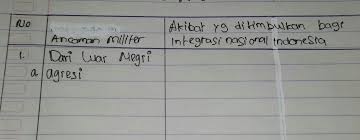 No
Ancaman Militer
Akibat yg ditimbulkan bagi
Integrasi nasional Indonesia
1. Dari Luar Negri
a agresi